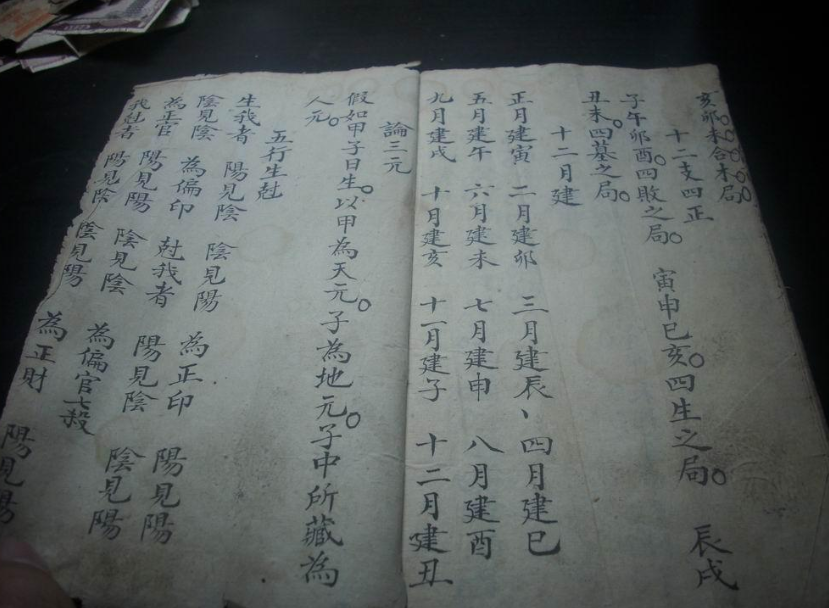 亥卯未合木局
十二支四正
子午卯酉。四敗之局。 寅申巳亥。四生之局。 辰戌
丑未。四墓之局。
十二月建
正月建寅 二月建卯 三月建辰、 四月建巳
五月建午 六月建未 七月建申 八月建酉
九月建戌 十月建亥 十一月建子 十二月建丑
論三元
假如甲子日生。以甲為天元。子為地元。子中所藏為
人元。
五行生尅
生我者 陽見陰 陰見陽 為正印 陽見陽
陰見陰 為偏印 尅我者 陽見陰 陰見陽
為正官 陽見陽 陰見陰 為偏官七殺
我尅者 陽見陰 陰見陽 為正財 陽見陽